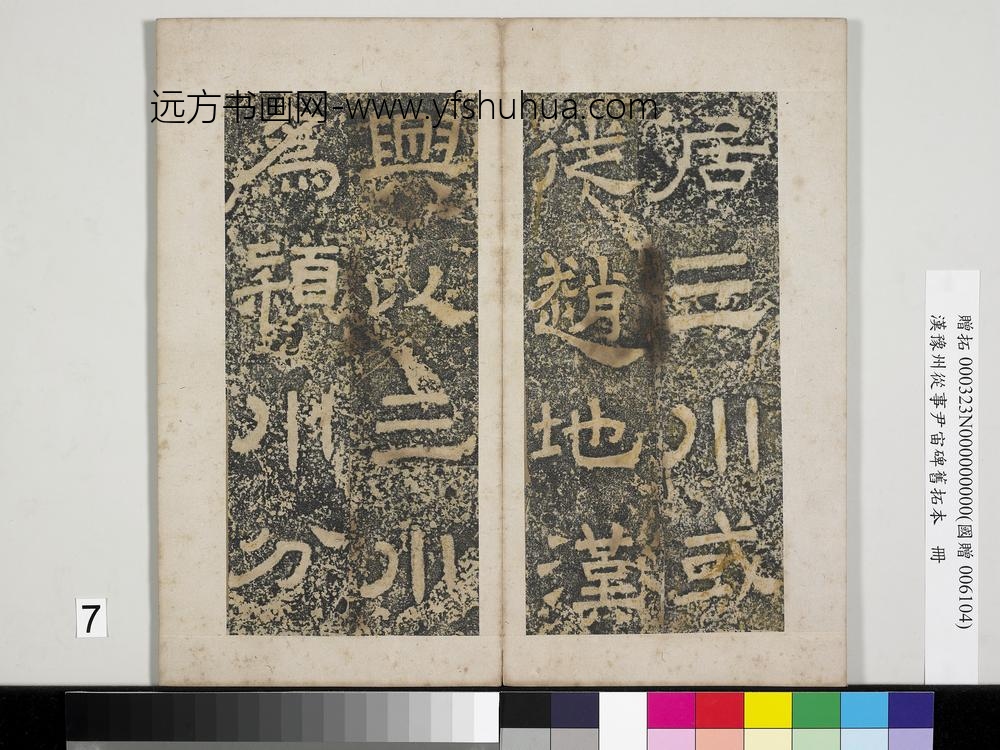 远方书画网-www.yfshuhua.com
居三川或
徙趙地漢
興以三川
為潁川分
贈拓 000323N000000000(國贈 006104)
漢豫州從事尹宙碑舊拓本 冊
7